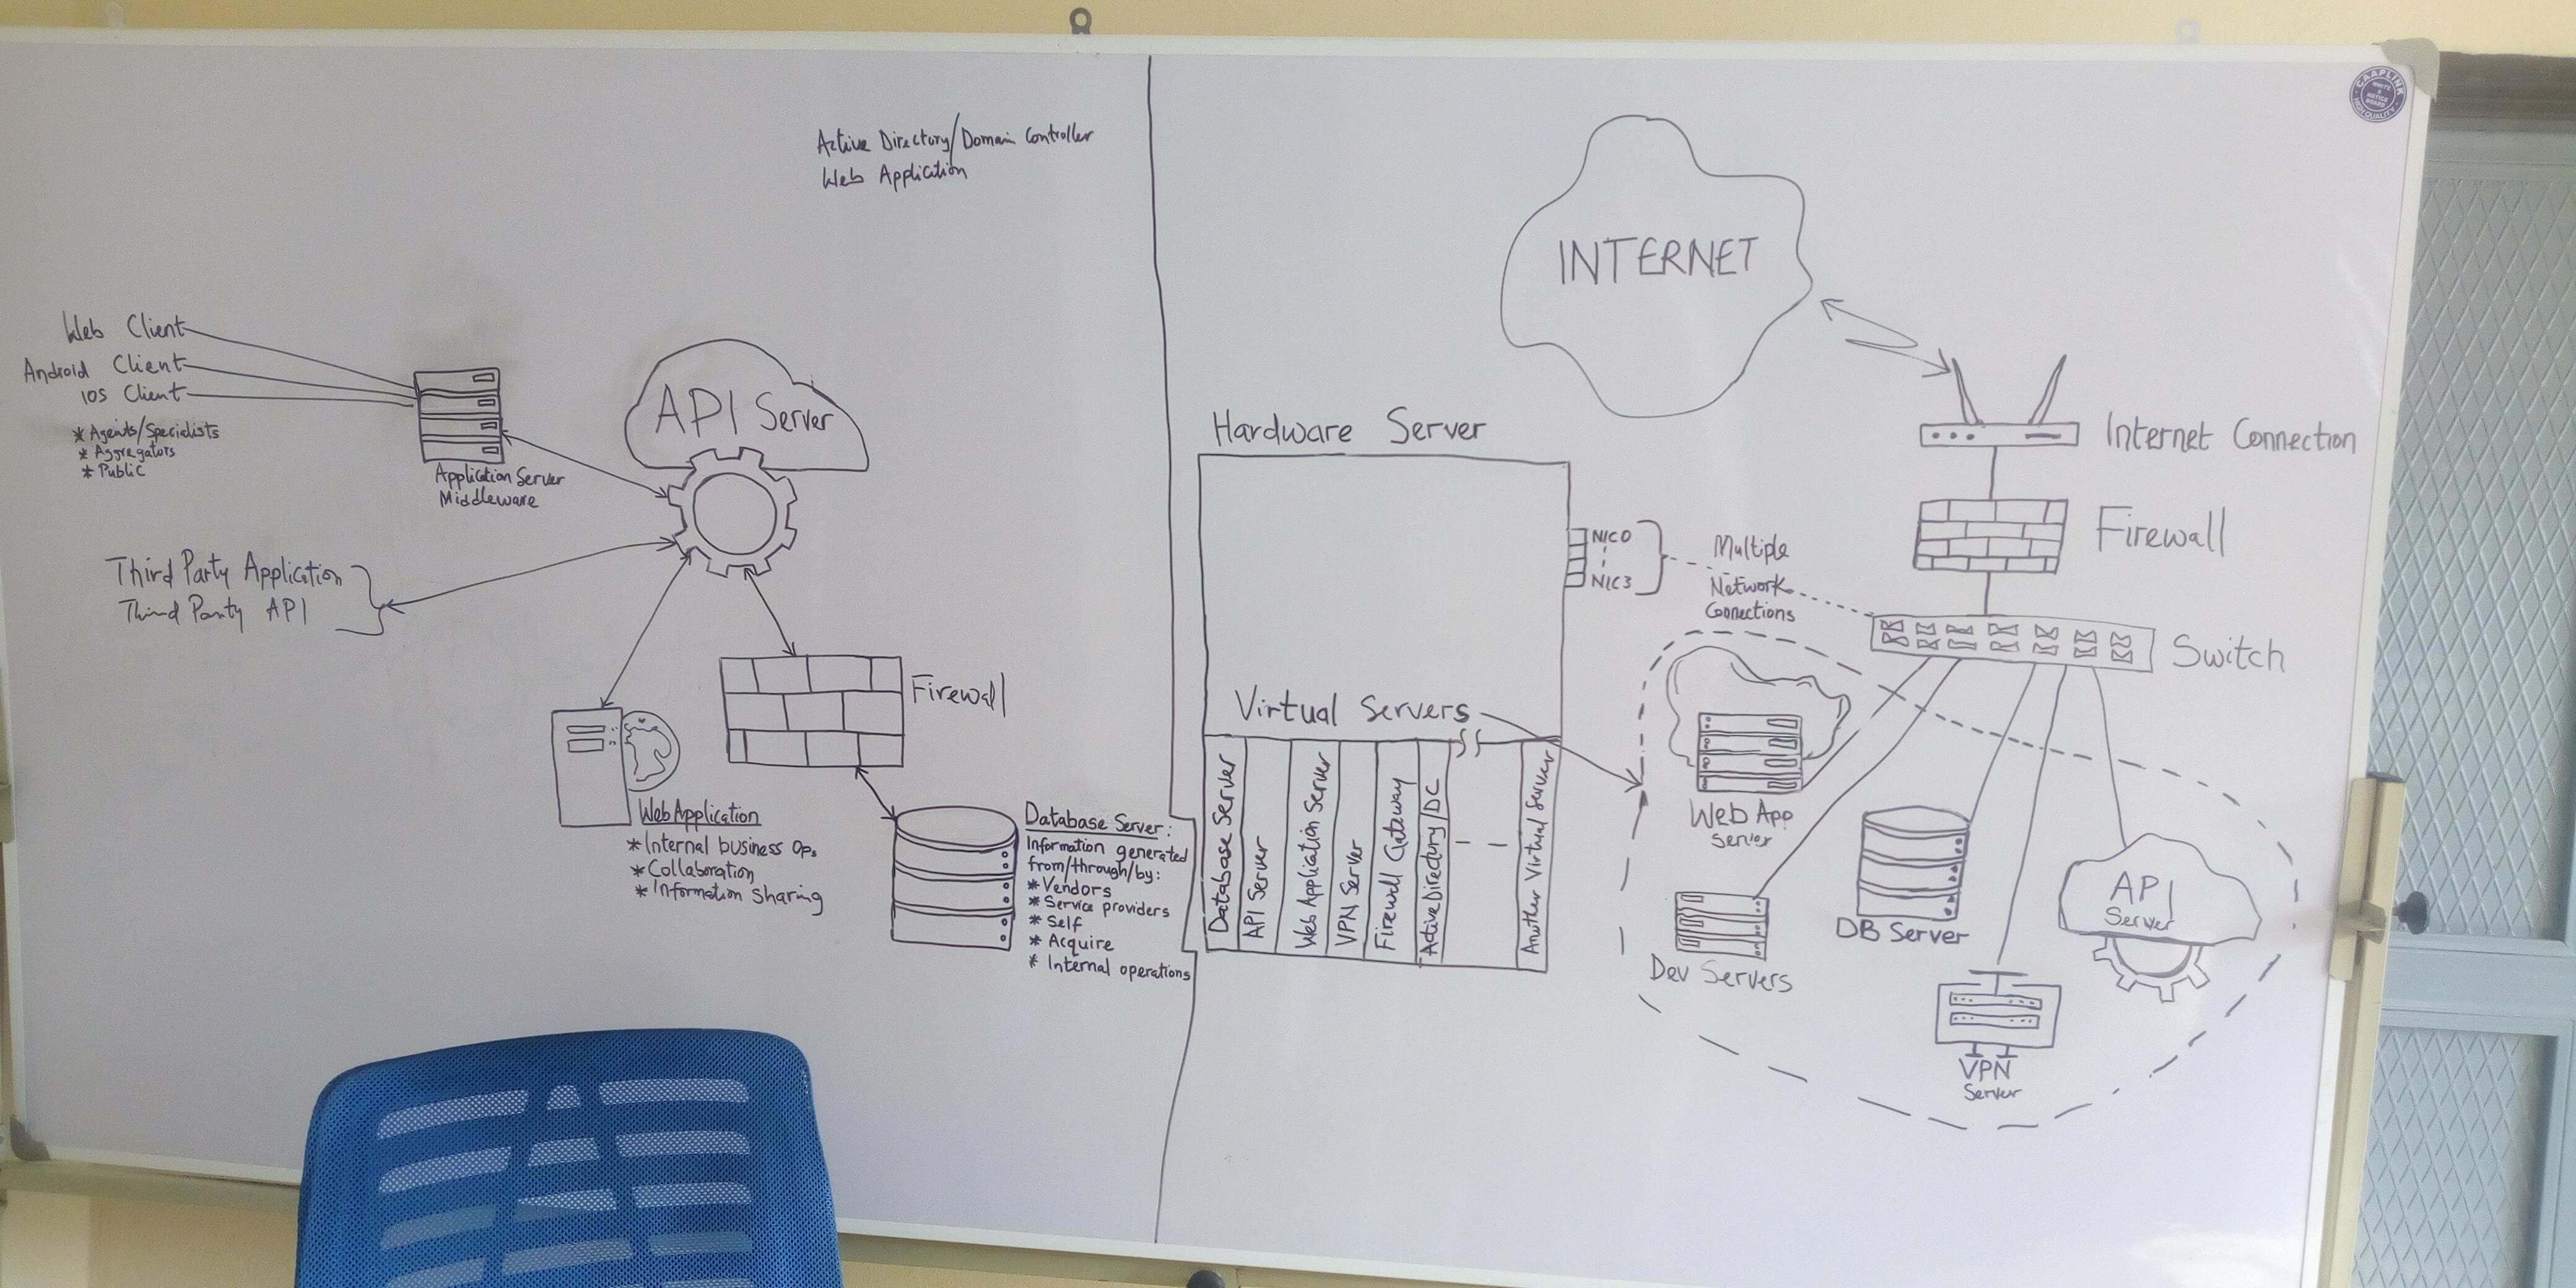 Active Directory/Domain Controller
Web Application
Web Client
Android Client
IOS Client
* Agents/Specialists
* Aggregators
* Public
Application Server
Middleware
API Server
Third Party Application
Third Party API
Firewall
Web Application
* Internal business Ops
* Collaboration
* Information Sharing
Database Server:
Information generated
from/through/by:
* Vendors
* Service providers
* Self
* Acquire
* Internal operations
INTERNET
Hardware Server
NIC0
NIC3
Multiple
Network
Connections
Virtual Servers
Database Server
API Server
Web Application Server
VPN Server
Firewall Gateway
Active Directory/DC
Another Virtual Server
Internet Connection
Firewall
Switch
Web App
Server
Dev Servers
DB Server
VPN
Server
API
Server
CAAPLINK
WHITE &
NOTICE
BOARD
HIGH QUALITY